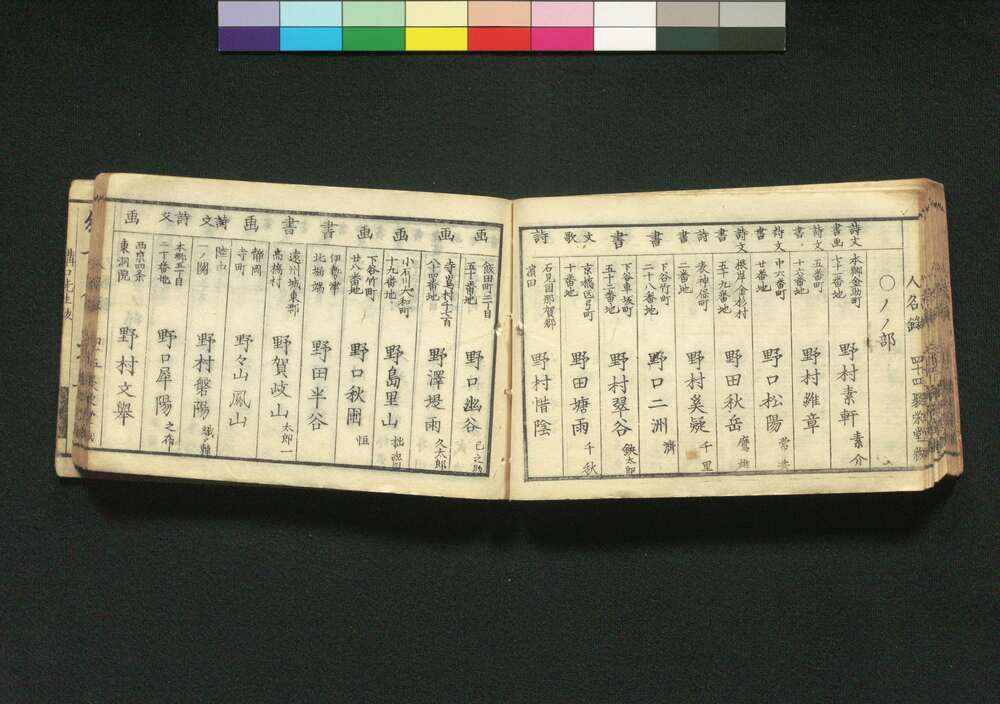 人名錄
四十四 聚栄堂
○ノノ部
詩文書画 本郷金助町七十三番地 野村素軒 素介
詩文書 五番町十六番地 野村維章
詩文書 中六番町廿番地 野口松陽 常共
詩文書 根岸金杉村五十九番地 野田秋岳 鷹雄
詩書 表神保町二番地 野村奚疑 千里
書 下谷竹町二十八番地 野口二洲 濟
書 下谷車坂町五十三番地 野村翠谷 鉄太郎
文歌 京橋区弓町十番地 野田塘雨 千秋
詩 石見国那賀郡濵田 野村惜陰
画 飯田町二丁目五十番地 野口幽谷 巳之助
画 寺島村千七百八十四番地 野澤堤雨 久太郎
画 小石川大和町十九番地 野島里山
画 下谷竹町廿八番地 野口秋圃 恒
書 伊勢津北堀端 野田半谷
書 遠州城東郡高橋村 野賀岐山 太郎一
画 靜岡寺町 野々山鳳山
詩文 陸中一ノ関 野村磐陽
詩文 本郷五丁目二丁番地 野口犀陽 之布
画 西京四条東洞院 野村文擧